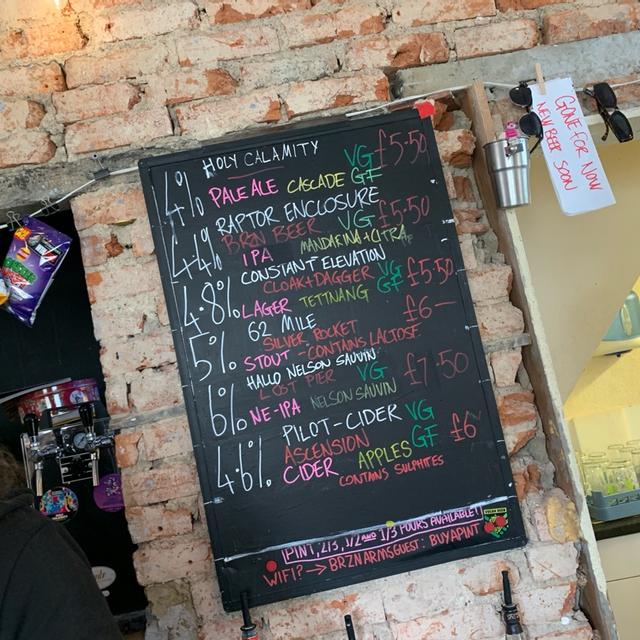 HOLY CALAMITY
4% PALE ALE CASCADE VG GF £5.50
RAPTOR ENCLOSURE
4.4% BRZN BEER VG £5.50
IPA MANDARINA + CITRA
CONSTANT ELEVATION
4.8% CLOAK + DAGGER VG £5.50
LAGER TETTNANG GF
62 MILE £6-
5% SILVER ROCKET
STOUT - CONTAINS LACTOSE
HALLO NELSON SAUVIN
6% LOST PIER VG £7.50
NE-IPA NELSON SAUVIN
PILOT-CIDER VG
4.6% ASCENSION GF £6
CIDER APPLES
CONTAINS SULPHITES
1 PINT, 2/3, 1/2 AND 1/3 POURS AVAILABLE!
WIFI? → BRZNARMSGUEST: BUYAPINT
GONE FOR NOW
NEW BEER SOON